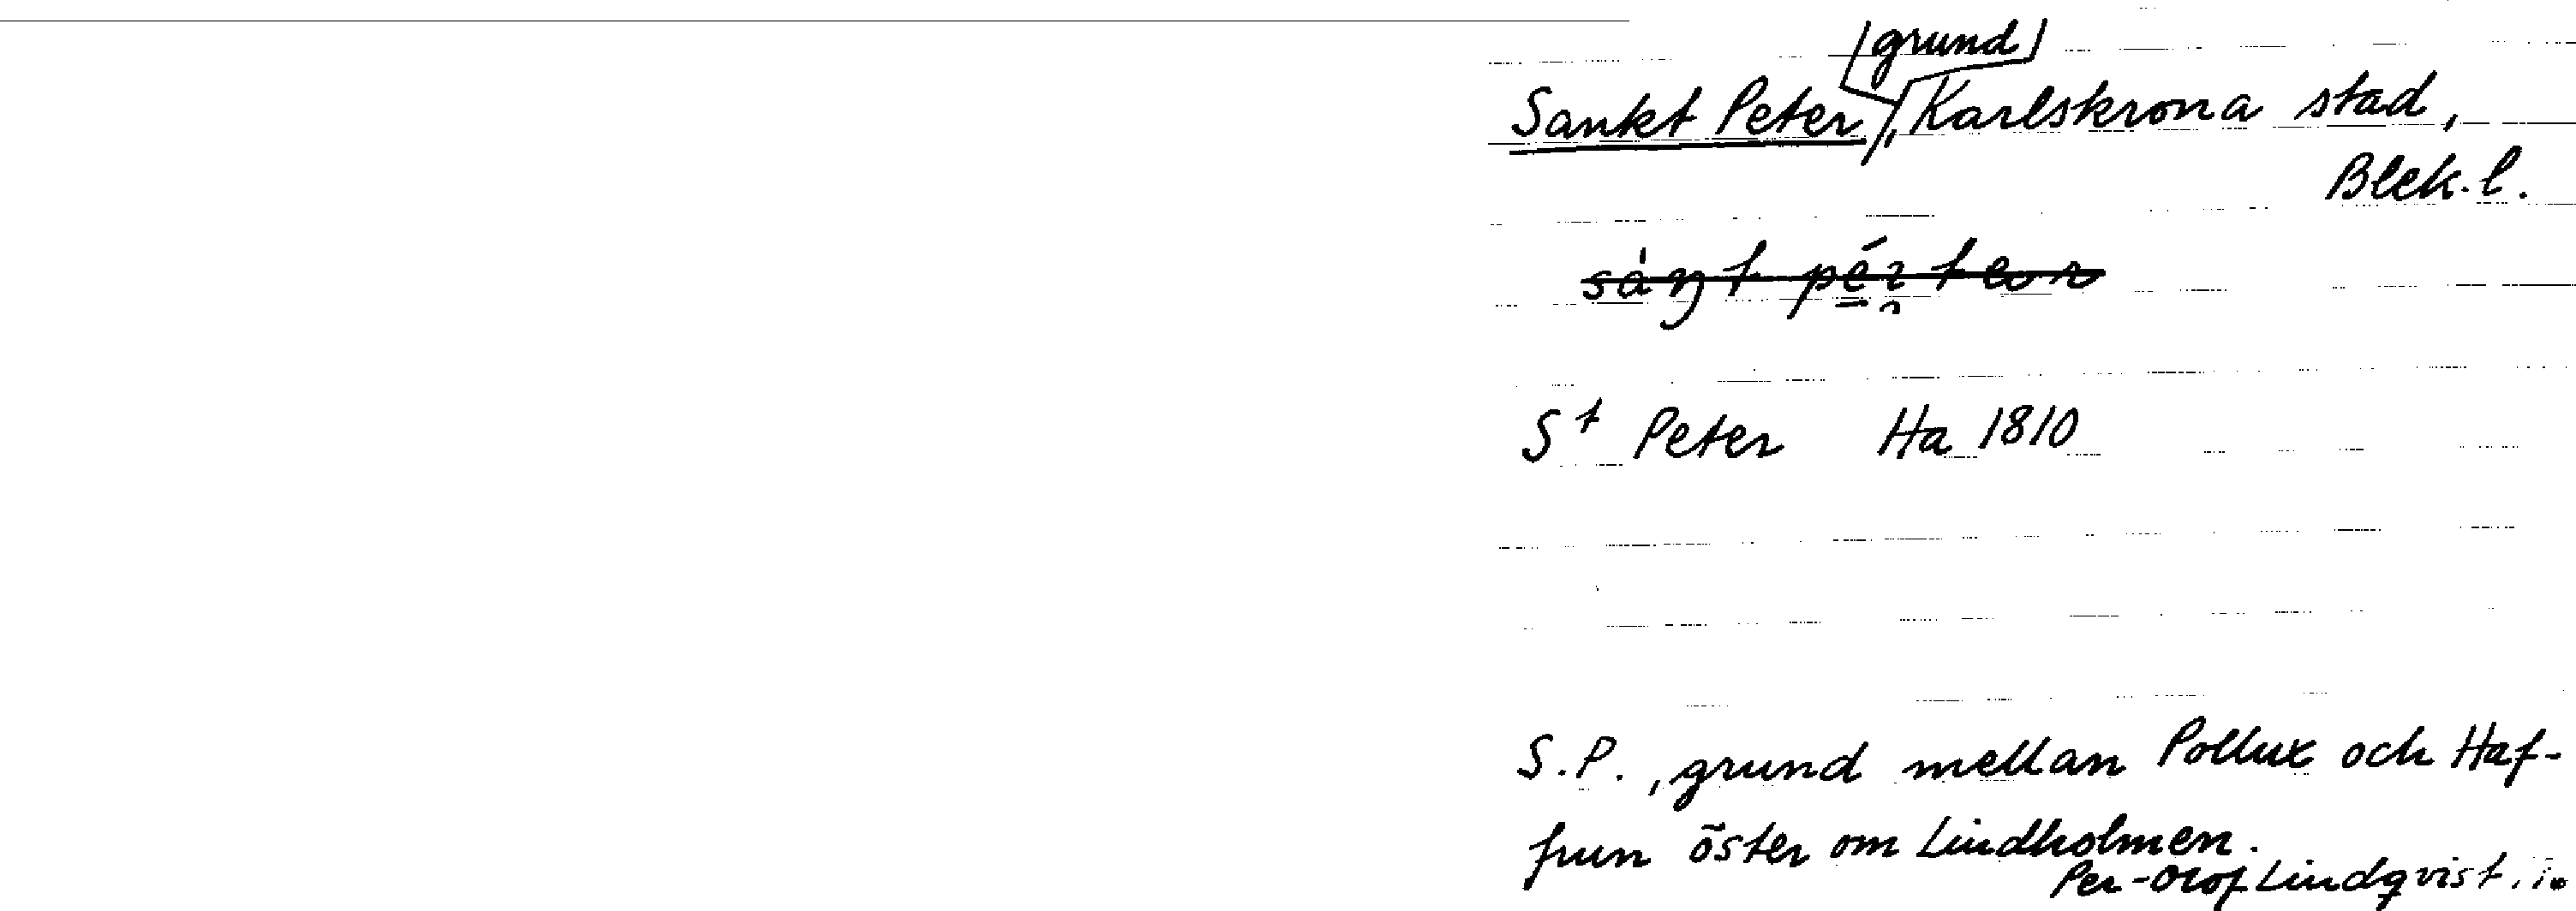 Sankt Peter, grund, Karlskrona stad,
Blek. l.
St Peter Ha 1810
S.P., grund mellan Pollux och Haf-
frun öster om Lindholmen.
Per-Olof Lindqvist